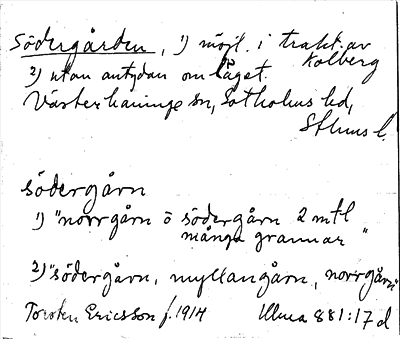 Södergården, 1) möjl. i trakt. av Kolberg
2) utan antydan om läget.
Västerhaninge sn, Sotholms hd,
Sthms l.
södergårn
1) "norrgårn ö södergårn 2 mtl
många grannar"
2) "södergårn, myllangårn, norrgårn"
Torsten Ericsson f. 1914 Ulma 881:17 d